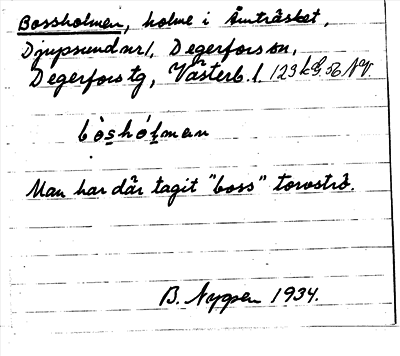 Bossholmen, holme i Åmträsket,
Djupsund nr 1, Degerfors sn,
Degerfors tg, Västerb. l. 123 kG. 56 NV.
bòshólman
Man har där tagit "boss" torvströ.
B. Nygren 1934.